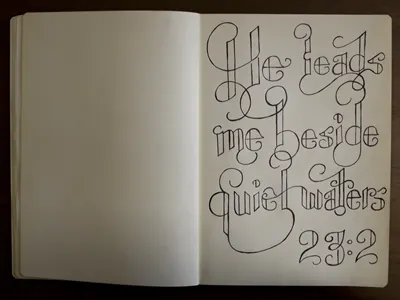 He leads
me beside
quiet waters
23:2